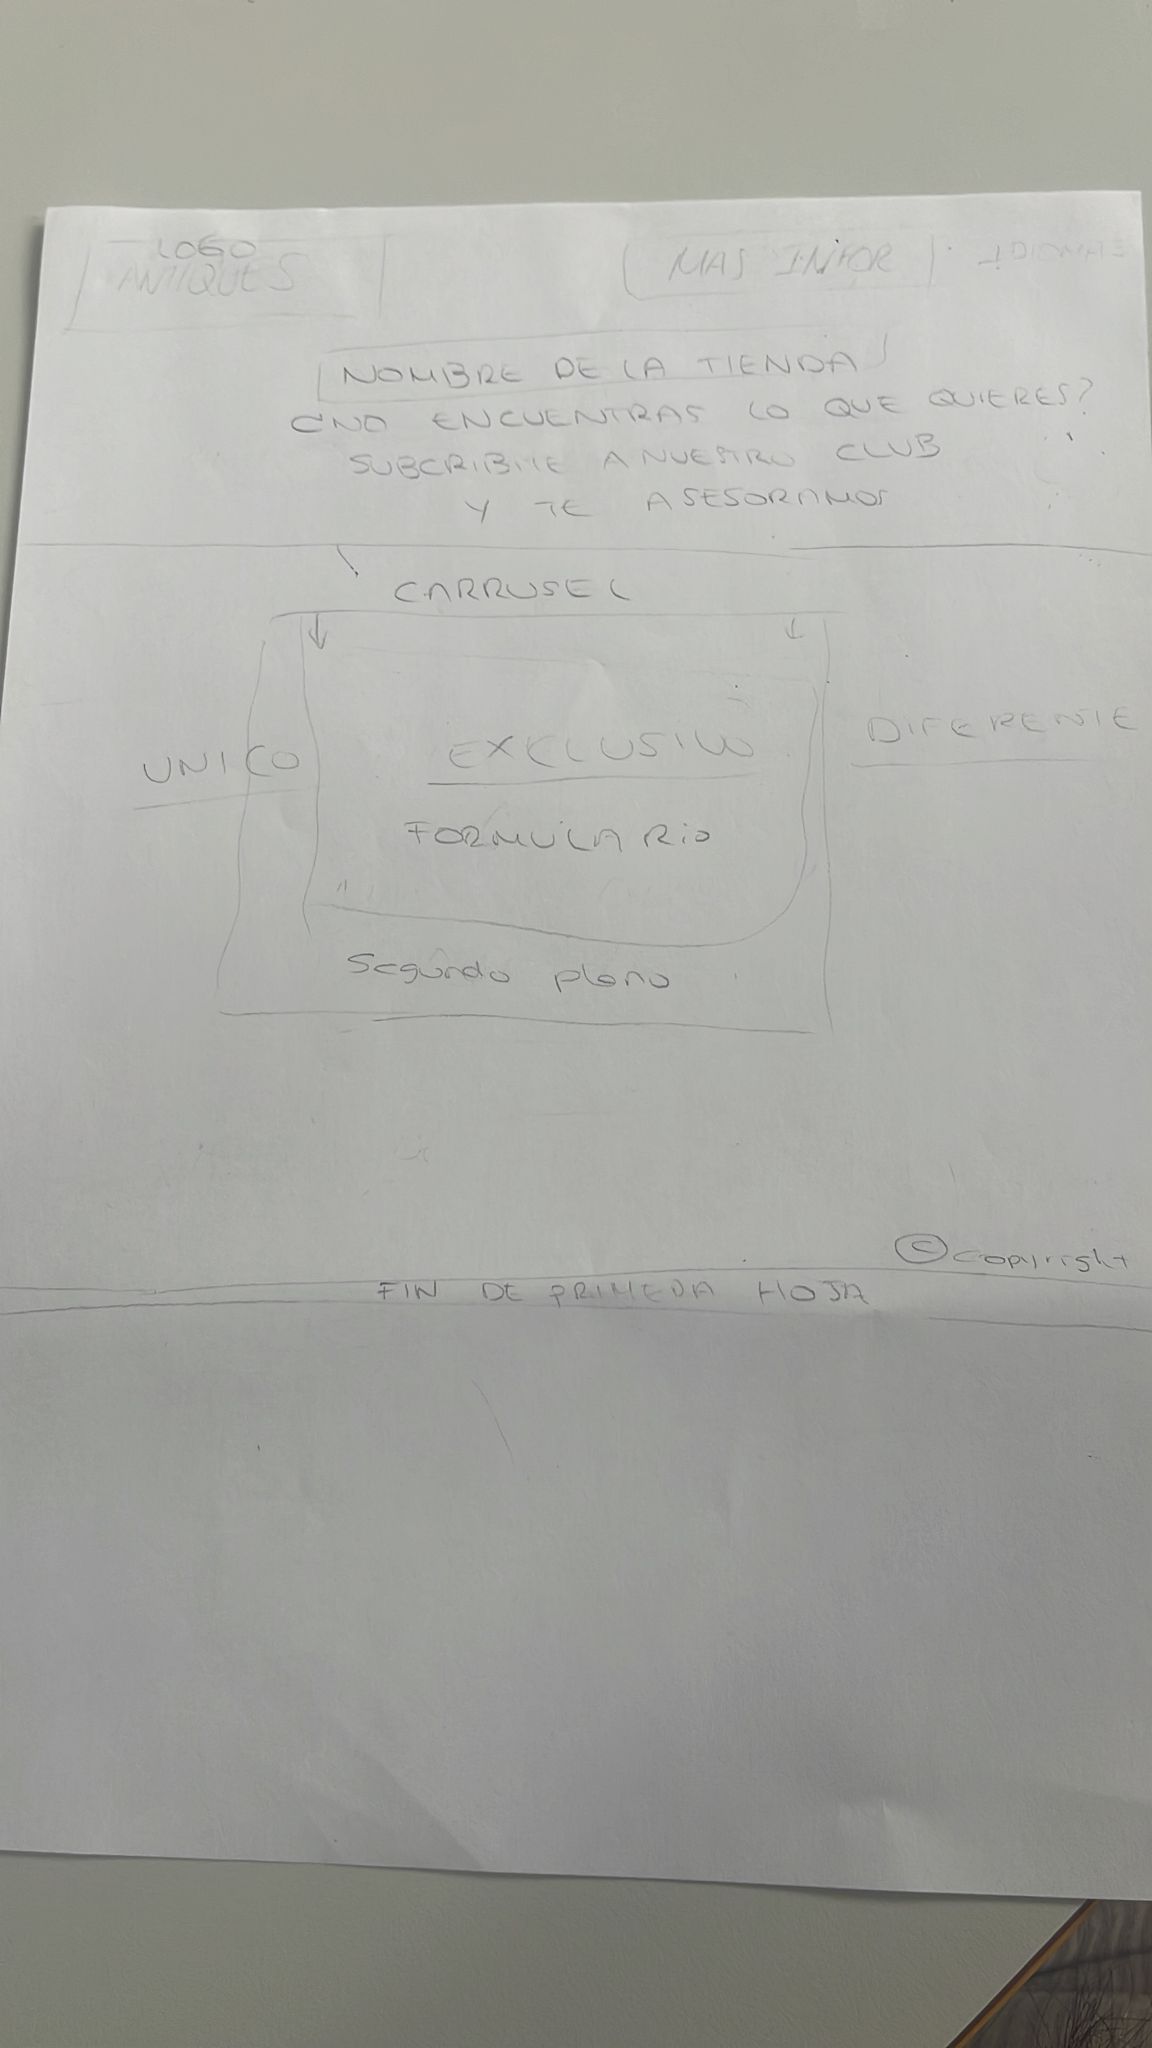 LOGO
ANTIQUES
MAS INFOR
IDIOMAS
NOMBRE DE LA TIENDA
¿NO ENCUENTRAS LO QUE QUIERES?
SUBCRIBITE A NUESTRO CLUB
Y TE ASESORAMOS
CARRUSEL
UNICO
EXCLUSIVO
DIFERENTE
FORMULARIO
Segundo plano
© copyright
FIN DE PRIMERA HOJA